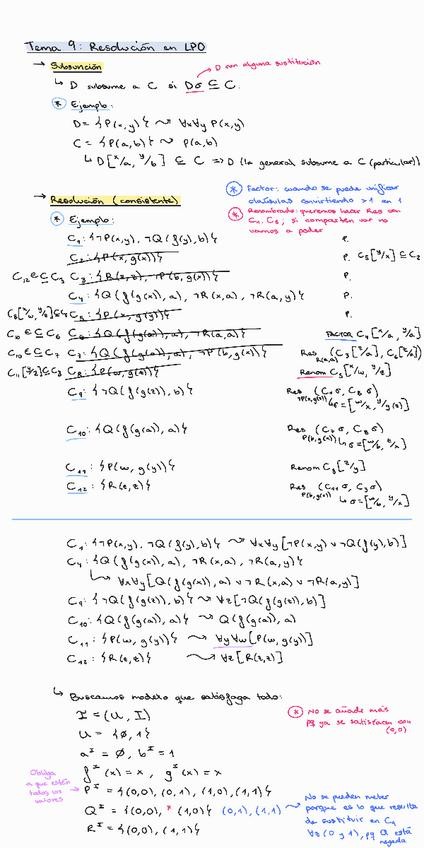 Tema 9: Resolución en LPO
→ Subsunción
↳ D subsume a C si Dσ ⊆ C.
→ D con alguna sustitución
* Ejemplo:
D = {P(x,y)} ⤳ ∀x∀y P(x,y)
C = {P(a,b)} ⤳ P(a,b)
↳ D[x/a, y/b] ⊆ C ⇒ D (la general) subsume a C (particular)
→ Resolución (consistente)
* Factor: cuando se puede unificar
cláusulas convirtiendo >1 en 1
* Renombrado: queremos hacer Res con
C₁, C₃; si comparten var no
vamos a poder
* Ejemplo:
C₁: {¬P(x,y), ¬Q(f(y),b)} P.
C₂: {P(x,g(x))} P. C₅[y/x] ⊆ C₂
C₁₂ ⊆ C₃ C₃: {R(z,z), ¬P(b,g(a))} P.
C₄: {Q(f(g(x)),a), ¬R(x,a), ¬R(a,y)} P.
C₅: {P(x,g(x))} P.
C₁₀ ⊆ C₆ C₆: {Q(f(g(a)),a), ¬R(a,a)} Factor C₄[x/a, y/a]
C₁₀ ⊆ C₇ C₇: {Q(f(g(a)),a), ¬P(b,g(a))} Res R(a,a) (C₃[z/a], C₆[x/a])
C₁₁[y/z] ⊆ C₈ C₈: {P(w,g(z))} Renom C₅[x/w, y/z]
C₉: {¬Q(f(g(z)),b)} Res ¬P(x,g(z)) (C₁σ, C₈σ)
↳ σ = [w/x, y/g(z)]
C₁₀: {Q(f(g(a)),a)} Res P(b,g(a)) (C₇σ, C₈σ)
↳ σ = [w/b, z/a]
C₁₁: {P(w,g(y))} Renom C₈[z/y]
C₁₂: {R(z,z)} Res P(b,g(a)) (C₁₁σ, C₃σ)
↳ σ = [w/b, y/a]
C₁: {¬P(x,y), ¬Q(f(y),b)} ⤳ ∀x∀y[¬P(x,y) ∨ ¬Q(f(y),b)]
C₄: {Q(f(g(x)),a), ¬R(x,a), ¬R(a,y)}
↳ ∀x∀y[Q(f(g(x)),a) ∨ ¬R(x,a) ∨ ¬R(a,y)]
C₉: {¬Q(f(g(z)),b)} ⤳ ∀z[¬Q(f(g(z)),b)]
C₁₀: {Q(f(g(a)),a)} ⤳ Q(f(g(a)),a)
C₁₁: {P(w,g(y))} ⤳ ∀y∀w[P(w,g(y))]
C₁₂: {R(z,z)} ⤳ ∀z[R(z,z)]
↳ Buscamos modelo que satisfaga todo:
I = (U, I)
* No se añade más
pq ya se satisfacen con
(0,0)
U = {0,1}
aᴵ = 0, bᴵ = 1
fᴵ(x) = x, gᴵ(x) = x
Obliga
a que estén
todos los
valores
Pᴵ = {(0,0), (0,1), (1,0), (1,1)}
Qᴵ = {(0,0), * (1,0)} (0,1), (1,1)
Rᴵ = {(0,0), (1,1)}
No se pueden meter
porque es lo que resulta
de sustituir en C₉
∀z (0 y 1), pq Q está
negada